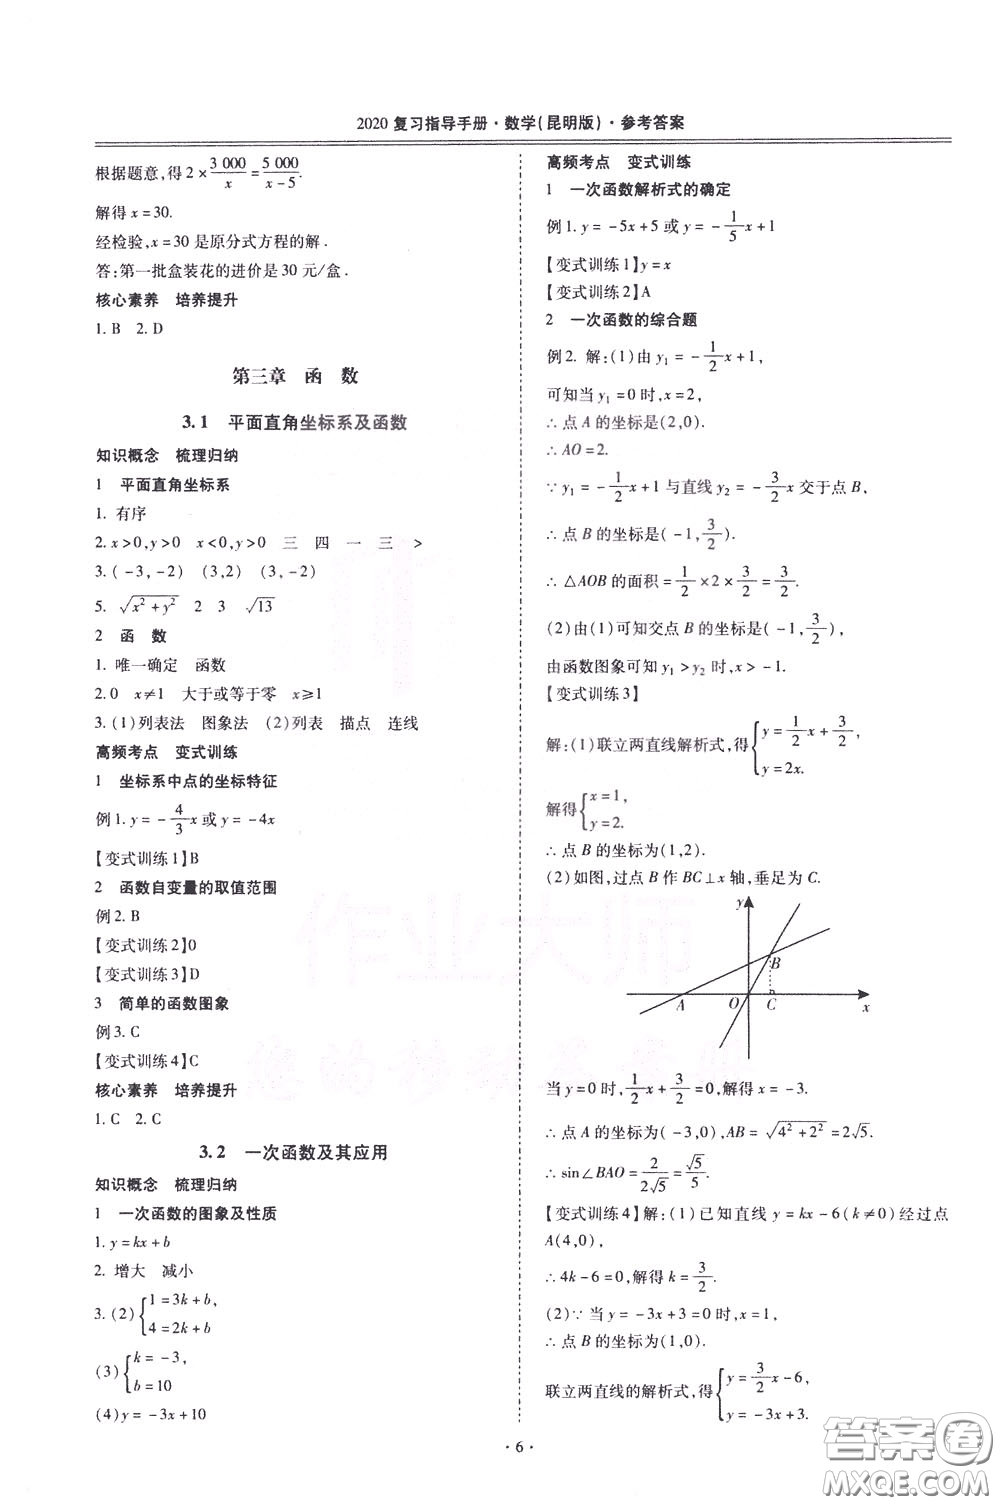 2020 复习指导手册·数学(昆明版)·参考答案
根据题意,得2×3 000/x=5 000/(x-5).
解得x=30.
经检验,x=30是原分式方程的解.
答:第一批盒装花的进价是30元/盒.
核心素养 培养提升
1. B 2. D
第三章 函 数
3.1 平面直角坐标系及函数
知识概念 梳理归纳
1 平面直角坐标系
1. 有序
2. x>0,y>0 x<0,y>0 三 四 一 三 >
3. (-3,-2) (3,2) (3,-2)
5. √(x²+y²) 2 3 √13
2 函 数
1. 唯一确定 函数
2. 0 x≠1 大于或等于零 x≥1
3. (1)列表法 图象法 (2)列表 描点 连线
高频考点 变式训练
1 坐标系中点的坐标特征
例1. y=-4/3x或y=-4x
【变式训练1】B
2 函数自变量的取值范围
例2. B
【变式训练2】0
【变式训练3】D
3 简单的函数图象
例3. C
【变式训练4】C
核心素养 培养提升
1. C 2. C
3.2 一次函数及其应用
知识概念 梳理归纳
1 一次函数的图象及性质
1. y=kx+b
2. 增大 减小
3. (2){1=3k+b,
4=2k+b
(3){k=-3,
b=10
(4)y=-3x+10
高频考点 变式训练
1 一次函数解析式的确定
例1. y=-5x+5或y=-1/5x+1
【变式训练1】y=x
【变式训练2】A
2 一次函数的综合题
例2. 解:(1)由y₁=-1/2x+1,
可知当y₁=0时,x=2,
∴点A的坐标是(2,0).
∴AO=2.
∵y₁=-1/2x+1与直线y₂=-3/2x交于点B,
∴点B的坐标是(-1,3/2).
∴△AOB的面积=1/2×2×3/2=3/2.
(2)由(1)可知交点B的坐标是(-1,3/2),
由函数图象可知y₁>y₂时,x>-1.
【变式训练3】
解:(1)联立两直线解析式,得{y=1/2x+3/2,
y=2x.
解得{x=1,
y=2.
∴点B的坐标为(1,2).
(2)如图,过点B作BC⊥x轴,垂足为C.
y
B
A O C x
当y=0时,1/2x+3/2=0,解得x=-3.
∴点A的坐标为(-3,0),AB=√(4²+2²)=2√5.
∴sin∠BAO=2/(2√5)=√5/5.
【变式训练4】解:(1)已知直线y=kx-6(k≠0)经过点
A(4,0),
∴4k-6=0,解得k=3/2.
(2)∵当y=-3x+3=0时,x=1,
∴点B的坐标为(1,0).
联立两直线的解析式,得{y=3/2x-6,
y=-3x+3.
·6·
作业大师
答案圈
MXQE.COM